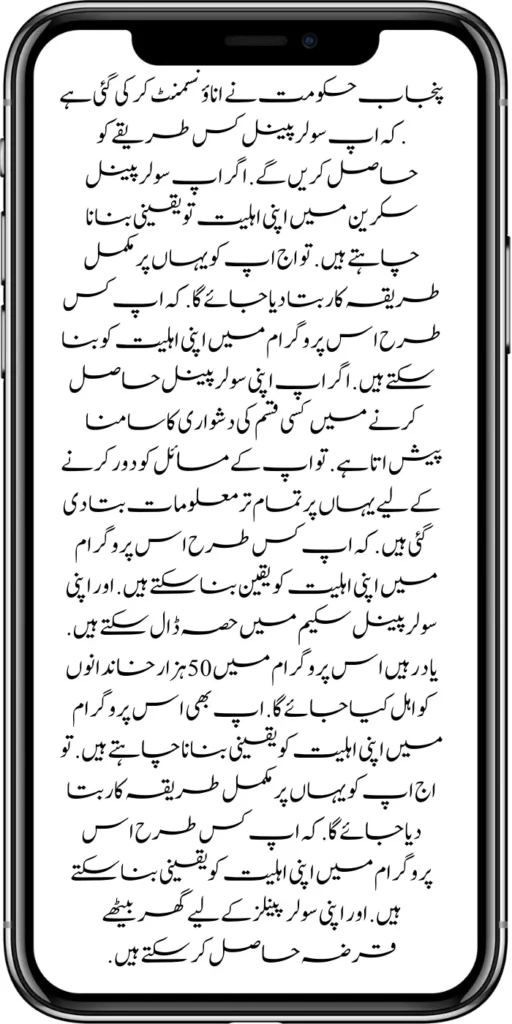 پنجاب حکومت نے اناؤنسمنٹ کر کی گئی ہے
. کہ اپ سولر پینل کس طریقے کو
حاصل کریں گے. اگر اپ سولر پینل
سکرین میں اپنی اہلیت تو یقینی بنانا
چاہتے ہیں. تو اج اپ کو یہاں پر مکمل
طریقہ کار بتا دیا جائے گا. کہ اپ کس
طرح اس پروگرام میں اپنی اہلیت کو بنا
سکتے ہیں. اگر اپ اپنی سولر پینل حاصل
کرنے میں کسی قسم کی دشواری کا سامنا
پیش اتا ہے. تو اپ کے مسائل کو دور کرنے
کے لیے یہاں پر تمام تر معلومات بتا دی
گئی ہیں. کہ اپ کس طرح اس پروگرام
میں اپنی اہلیت کو یقین بنا سکتے ہیں. اور اپنی
سولر پینل سکیم میں حصہ ڈال سکتے ہیں.
یاد رہیں اس پروگرام میں 50 ہزار خاندانوں
کو اہل کیا جائے گا. اپ بھی اس پروگرام
میں اپنی اہلیت کو یقینی بنانا چاہتے ہیں. تو
اج اپ کو یہاں پر مکمل طریقہ کار بتا
دیا جائے گا. کہ اپ کس طرح اس
پروگرام میں اپنی اہلیت کو یقینی بنا سکتے
ہیں. اور اپنی سولر پینلز کے لیے گھر بیٹھے
قرضہ حاصل کر سکتے ہیں.